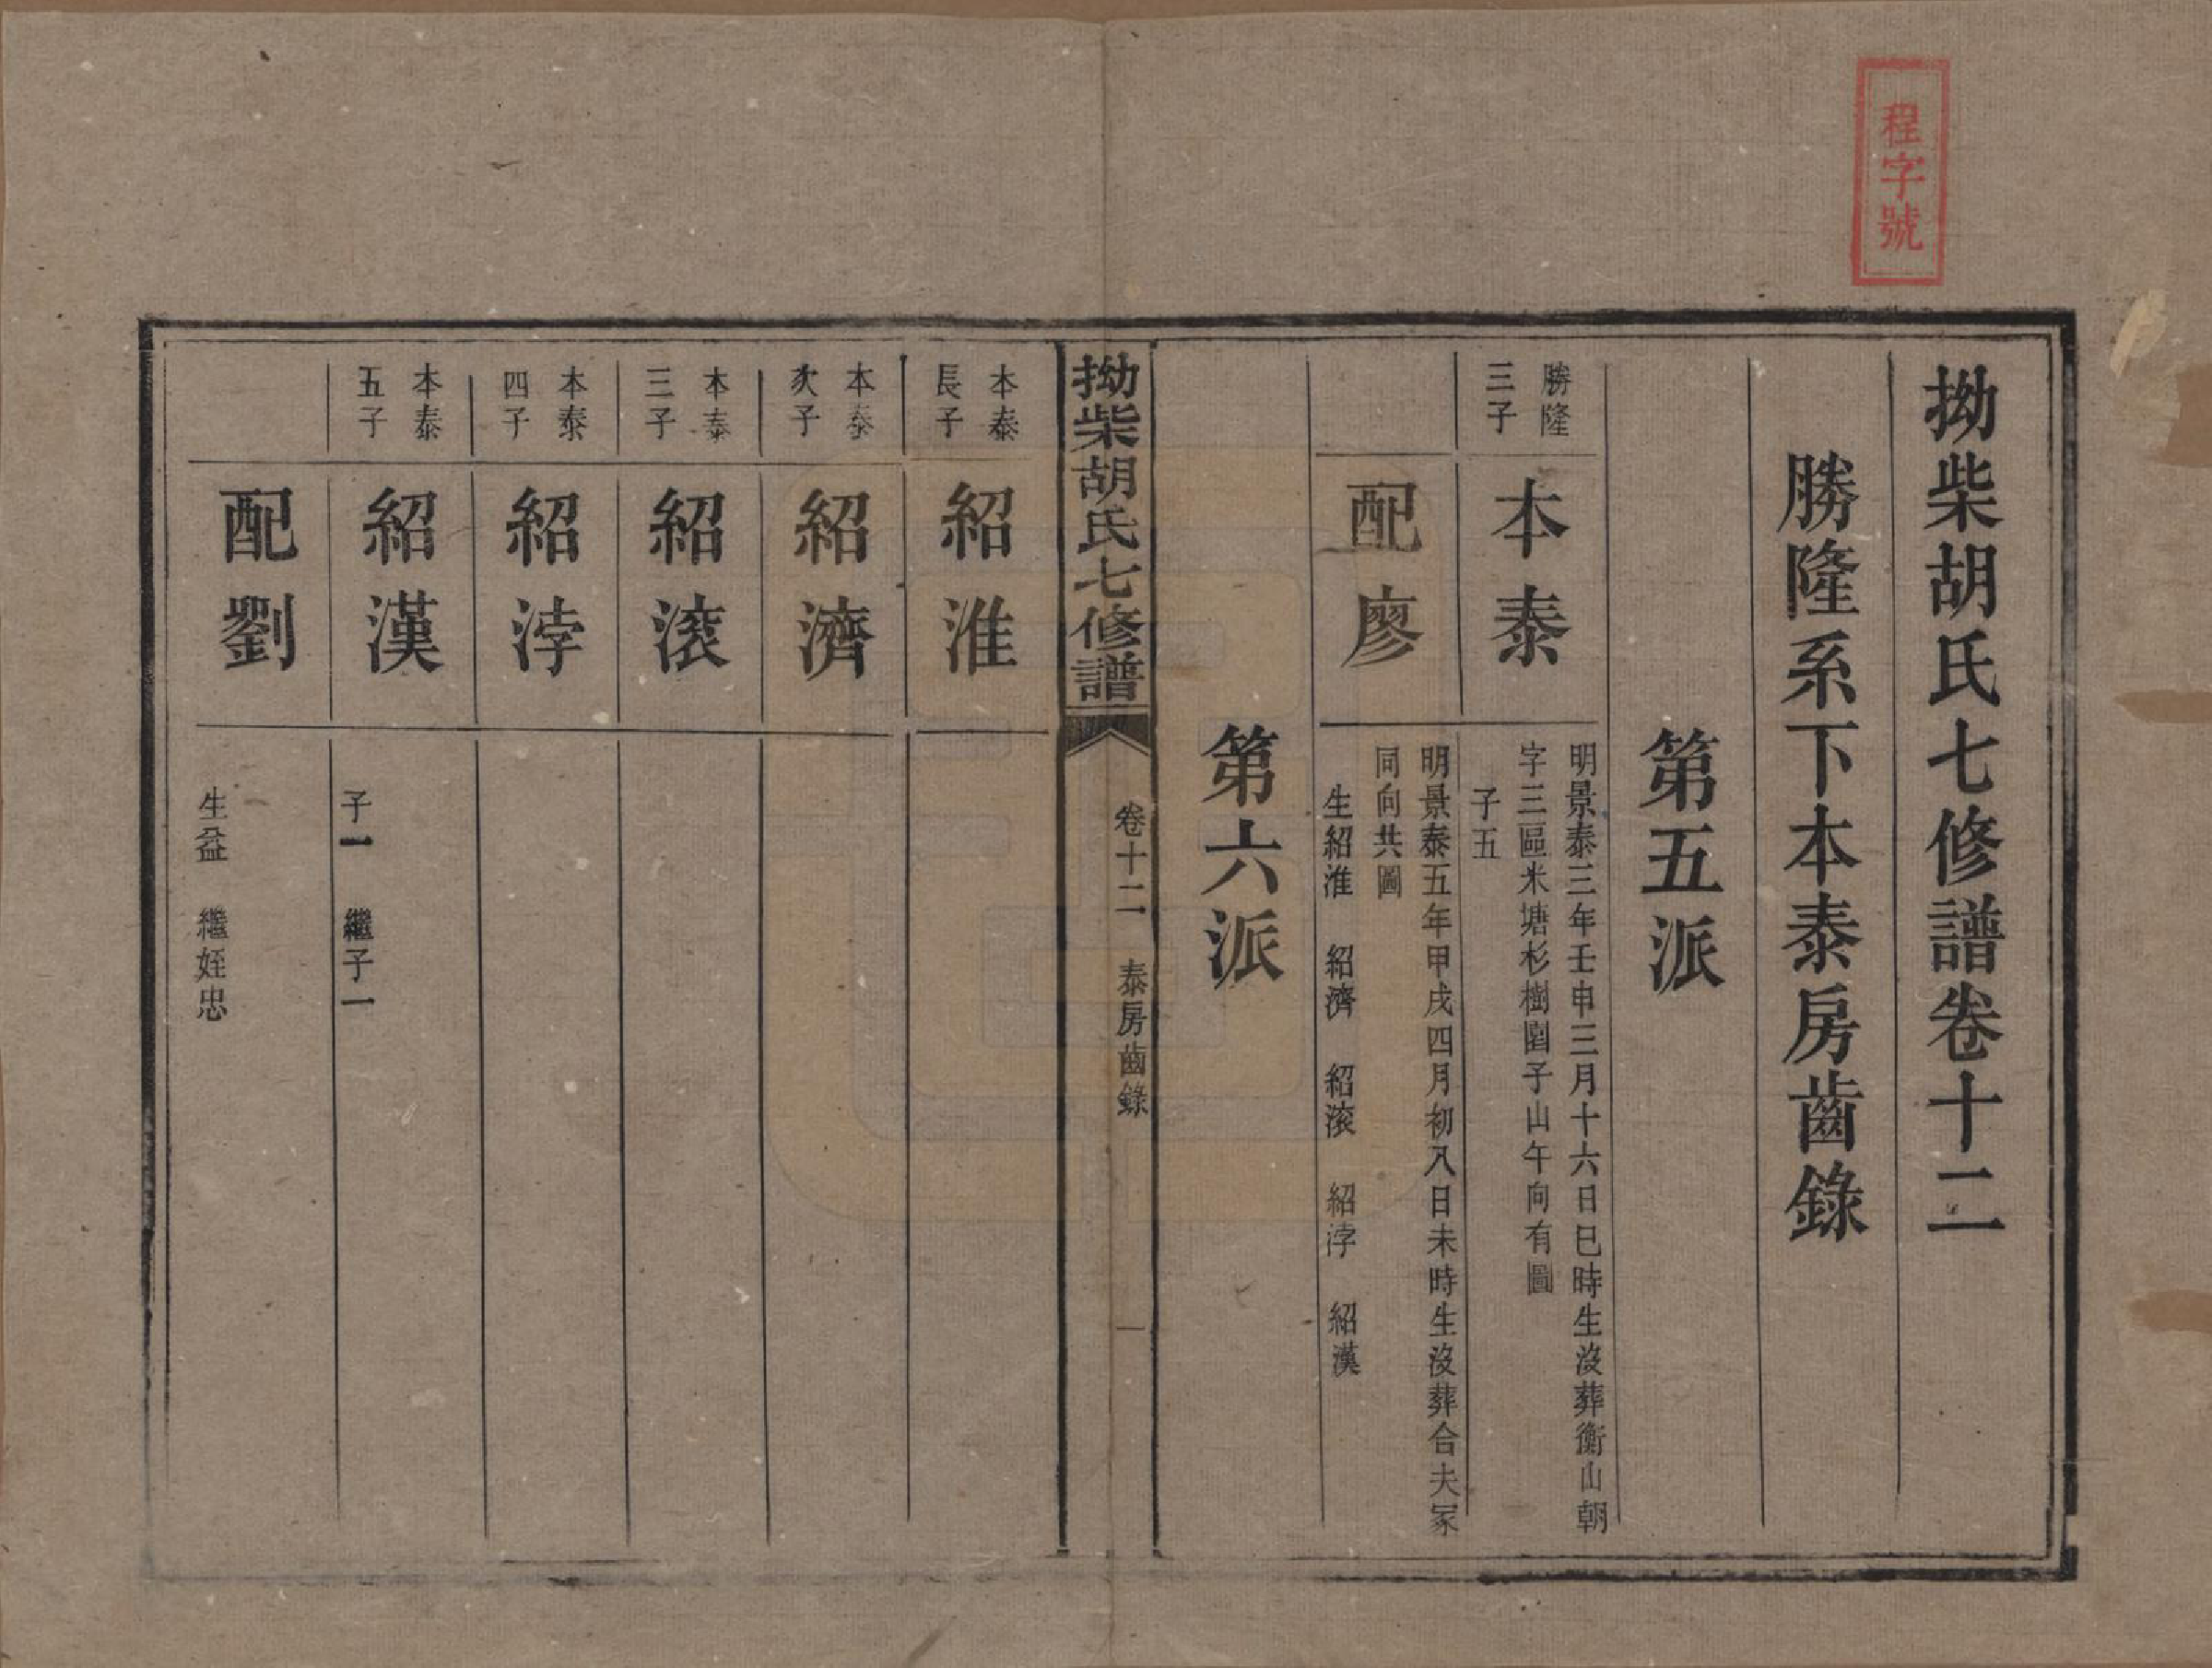 程字號
拗柴胡氏七修譜卷十二
勝隆系下本泰房齒錄
第五派
勝隆
三子
本泰
明景泰三年壬申三月十六日巳時生沒葬衡山朝
字三區米塘杉樹園子山午向有圖
子五
配廖
明景泰五年甲戌四月初八日未時生沒葬合夫冢
同向共圖
生紹淮 紹濟 紹滚 紹浡 紹漢
第六派
拗柴胡氏七修譜
卷十二 泰房齒錄
一
本泰
長子
紹淮
本泰
次子
紹濟
本泰
三子
紹滚
本泰
四子
紹浡
本泰
五子
紹漢
子一 繼子一
配劉
生益 繼姪忠